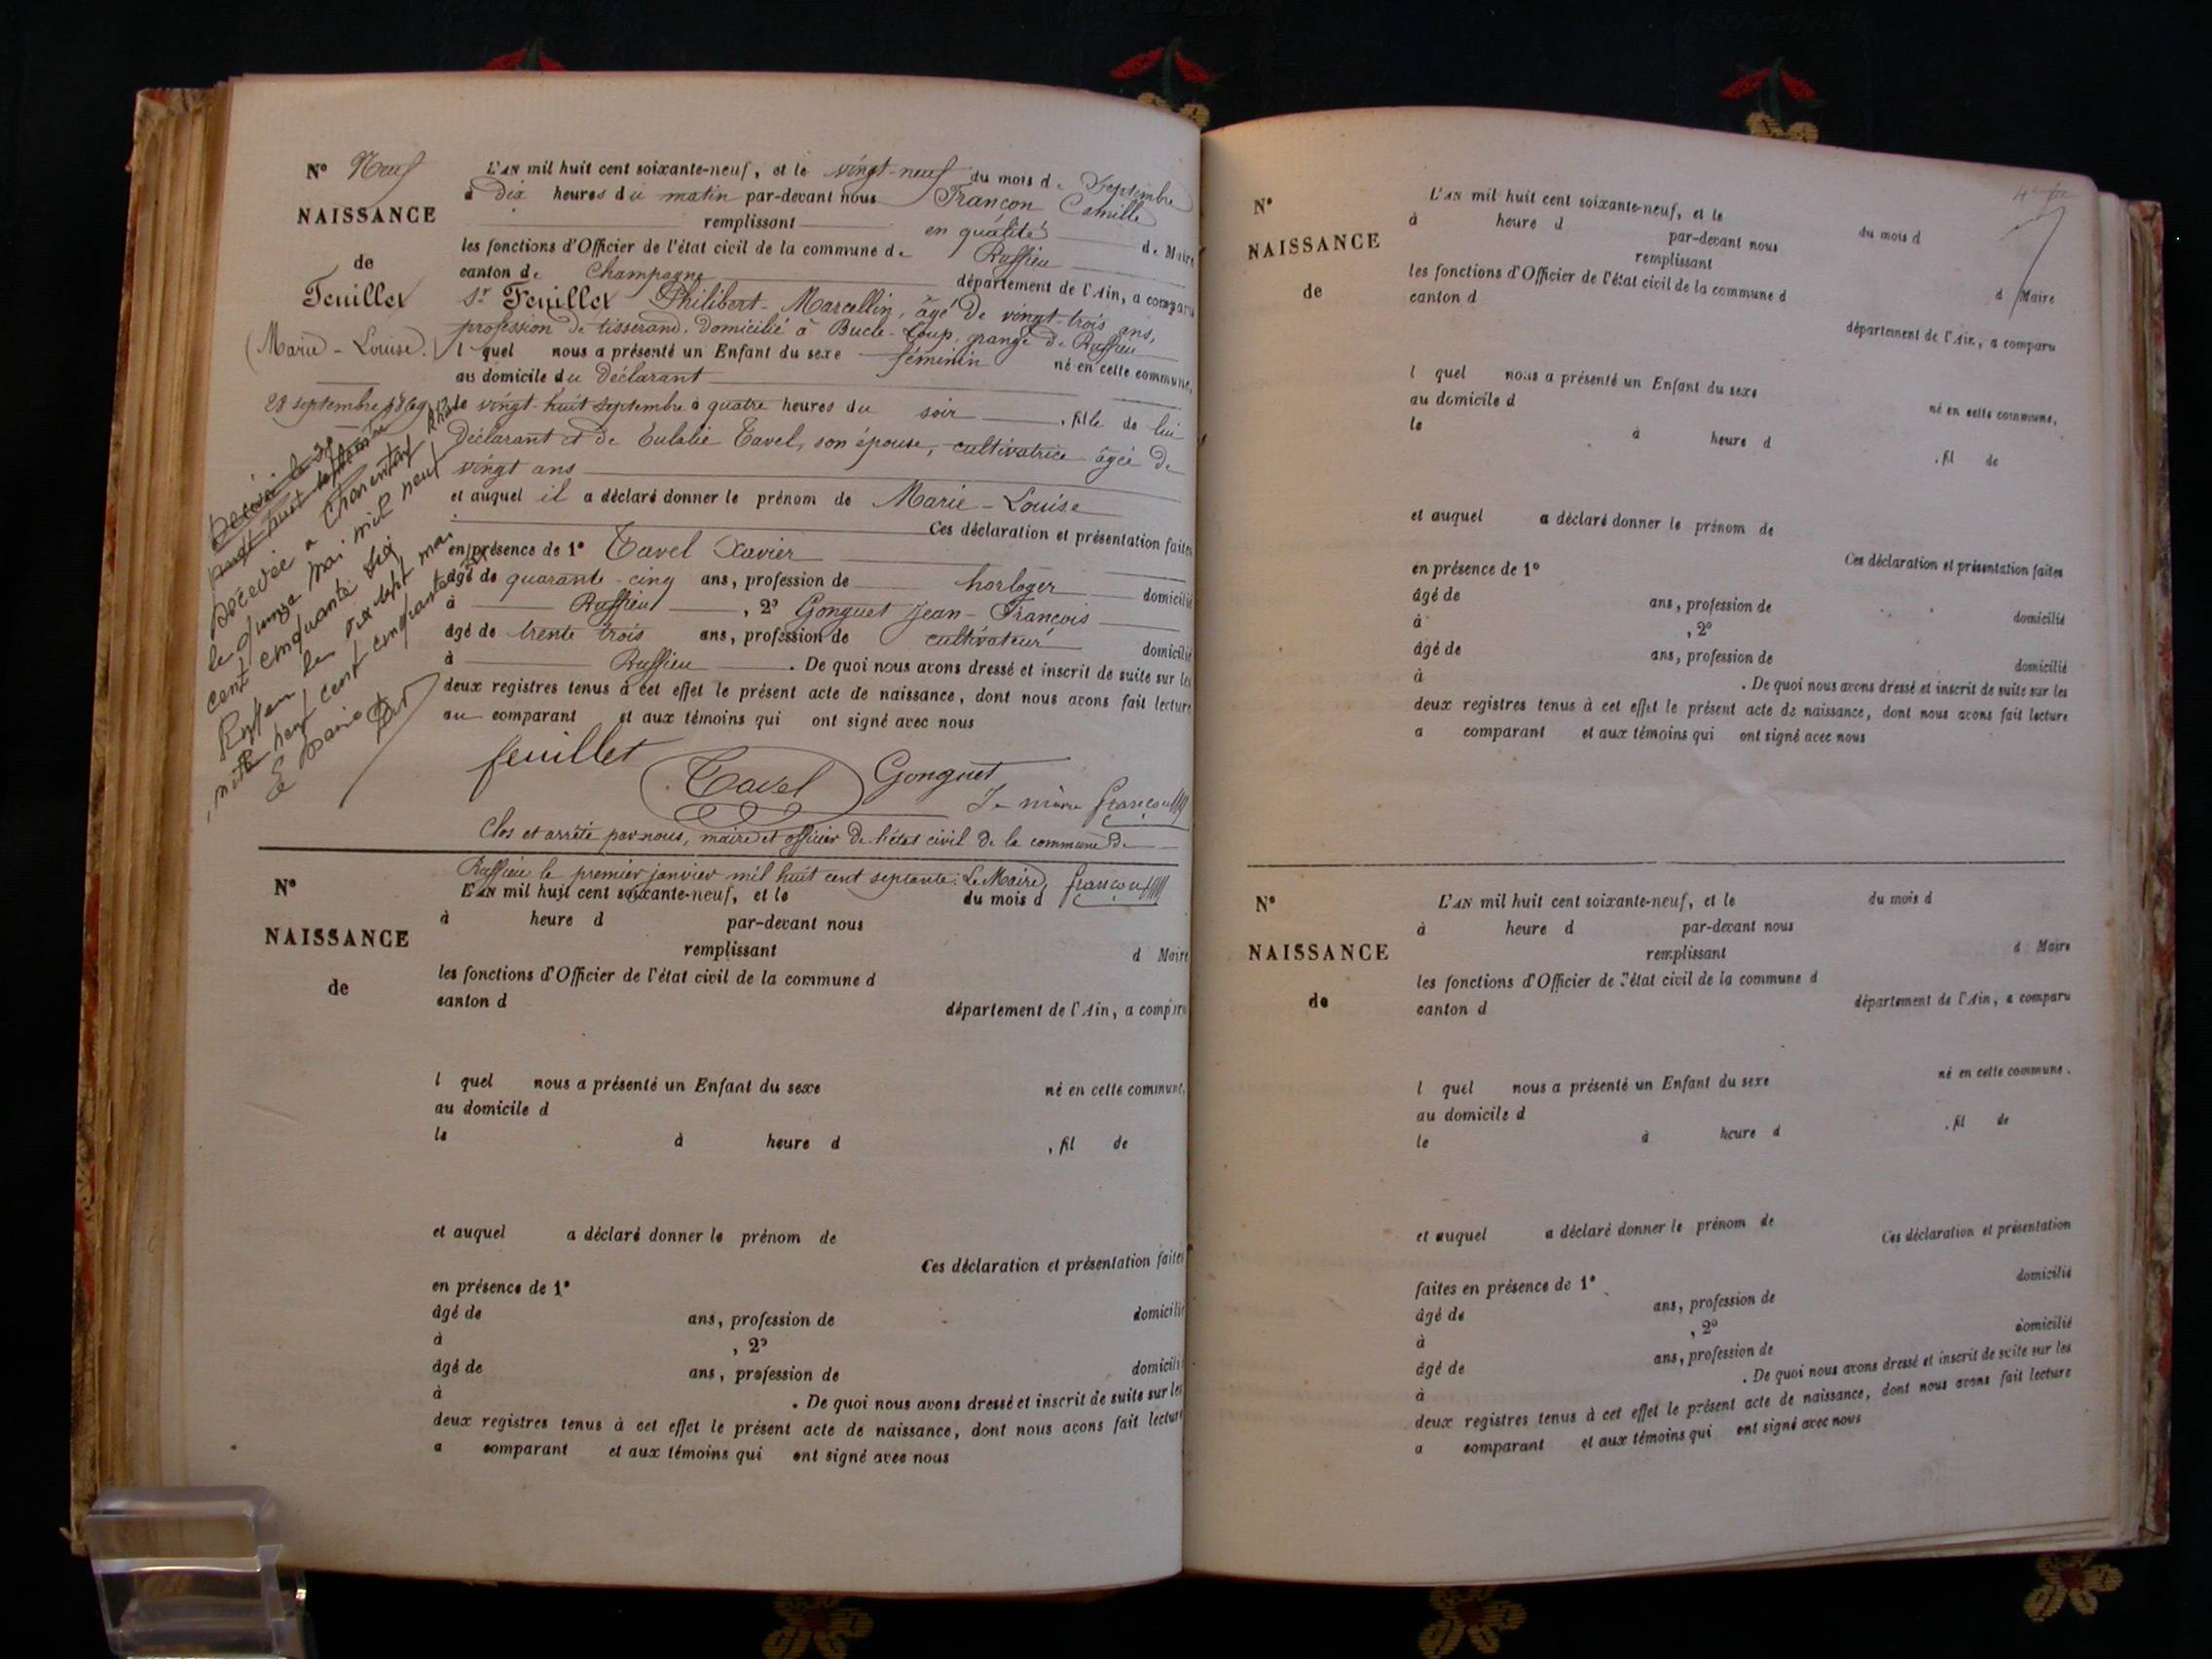 N° Neuf
NAISSANCE
de
Feuillet
(Marie-Louise.)
28 septembre 1869
L'AN mil huit cent soixante-neuf, et le vingt-neuf du mois de Septembre
à Dix heures du matin par-devant nous Françon Camille
remplissant en qualité de Maire
les fonctions d'Officier de l'état civil de la commune de Ruffieu
canton de Champagne département de l'Ain, a comparu
Sr Feuillet Philibert-Marcellin, âgé de vingt-trois ans,
profession de tisserand, domicilié à Bucle-Loup, grange de Ruffieu
lequel nous a présenté un Enfant du sexe féminin né en cette commune,
au domicile du Déclarant
le vingt-huit Septembre à quatre heures du soir, fille de lui
Déclarant et de Eulalie Tavel, son épouse, cultivatrice âgée de
vingt ans
et auquel il a déclaré donner le prénom de Marie-Louise
Ces déclaration et présentation faites
en présence de 1° Tavel Xavier
âgé de quarante-cinq ans, profession de horloger domicilié
à Ruffieu, 2° Gonguet Jean-François
âgé de trente trois ans, profession de cultivateur domicilié
à Ruffieu. De quoi nous avons dressé et inscrit de suite sur les
deux registres tenus à cet effet le présent acte de naissance, dont nous avons fait lecture
au comparant et aux témoins qui ont signé avec nous
feuillet
Tavel
Gonguet
Le maire françon
Clos et arrêté par nous, maire et officier de l'état civil de la commune de
Ruffieu le premier janvier mil huit cent septante. Le Maire, françon
Décédé le
vingt huit septembre
Décédée à Charenton Rhône
le quinze mai mil neuf
cent cinquante six
Ruffieu le dix sept mai
mil neuf cent cinquante six
Le Maire
N°
NAISSANCE
de
L'AN mil huit cent soixante-neuf, et le du mois d
à heure d par-devant nous
remplissant d Maire
les fonctions d'Officier de l'état civil de la commune d
canton d département de l'Ain, a comparu
l quel nous a présenté un Enfant du sexe né en cette commune,
au domicile d
le à heure d , fil de
et auquel a déclaré donner le prénom de
Ces déclaration et présentation faites
en présence de 1°
âgé de ans, profession de domicilié
à , 2°
âgé de ans, profession de domicilié
à . De quoi nous avons dressé et inscrit de suite sur les
deux registres tenus à cet effet le présent acte de naissance, dont nous avons fait lecture
a comparant et aux témoins qui ont signé avec nous
N°
NAISSANCE
de
L'AN mil huit cent soixante-neuf, et le du mois d
à heure d par-devant nous
remplissant d Maire
les fonctions d'Officier de l'état civil de la commune d
canton d département de l'Ain, a comparu
l quel nous a présenté un Enfant du sexe né en cette commune,
au domicile d
le à heure d , fil de
et auquel a déclaré donner le prénom de
Ces déclaration et présentation faites
en présence de 1°
âgé de ans, profession de domicilié
à , 2°
âgé de ans, profession de domicilié
à . De quoi nous avons dressé et inscrit de suite sur les
deux registres tenus à cet effet le présent acte de naissance, dont nous avons fait lecture
a comparant et aux témoins qui ont signé avec nous
N°
NAISSANCE
de
L'AN mil huit cent soixante-neuf, et le du mois d
à heure d par-devant nous
remplissant d Maire
les fonctions d'Officier de l'état civil de la commune d
canton d département de l'Ain, a comparu
l quel nous a présenté un Enfant du sexe né en cette commune.
au domicile d
le à heure d , fil de
et auquel a déclaré donner le prénom de
Ces déclaration et présentation
faites en présence de 1° domicilié
âgé de ans, profession de
à , 2° domicilié
âgé de ans, profession de
à . De quoi nous avons dressé et inscrit de suite sur les
deux registres tenus à cet effet le présent acte de naissance, dont nous avons fait lecture
a comparant et aux témoins qui ont signé avec nous